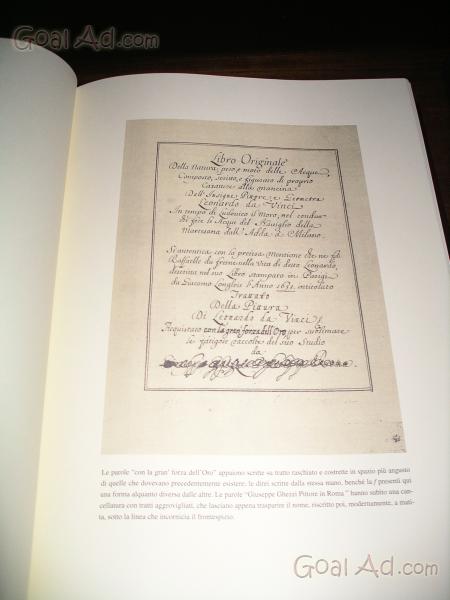 Goal Ad.com
Libro Originale
Della Natura, peso, e moto delle Acque,
Composto, scritto, e figurato di proprio
Carattere alla mancina
Dell'Insigne Pittore e Geometra
Leonardo da Vinci
In tempo di Ludovico il Moro, nel condur
le Acque del Naviglio della
Martesana dall'Adda a Milano.
Si autentica con la precisa mentione che ne fà
Raffaelle du frene nella Vita di detto Leonardo,
descritta nel suo Libro stampato in Parigi
da Giacomo Langlois l'Anno 1651. intitolato
Trattato
Della Pittura
Di Leonardo da Vinci
Acquistato con la gran forza dell'Oro per sublimare
le raccolte del suo Studio
da
Le parole "con la gran' forza dell'Oro" appaiono scritte su tratto raschiato e costrette in spazio più angusto
di quelle che dovevano precedentemente esistere; le direi scritte dalla stessa mano, benché la f presenti qui
una forma alquanto diversa dalle altre. Le parole "Giuseppe Ghezzi Pittore in Roma" hanno subìto una can-
cellatura con tratti aggrovigliati, che lasciano appena trasparire il nome, riscritto poi, modernamente, a mati-
ta, sotto la linea che incornicia il frontespizio.
Goal Ad.com